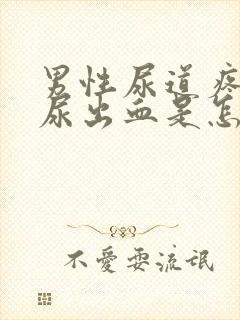 男性尿道疼
尿出血是怎
不愛耍流氓